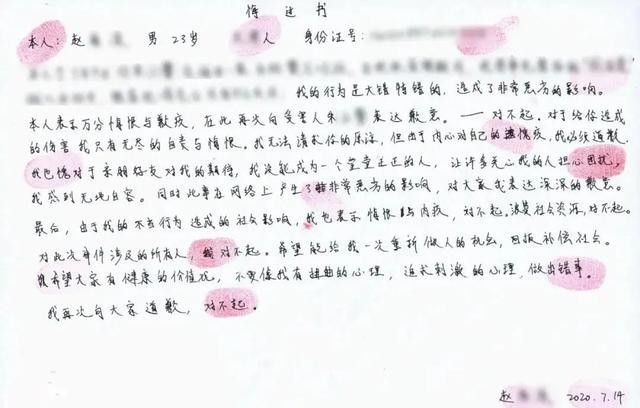 悔过书
本人：赵 男 23岁 人 身份证号：
我的行为是大错特错的，造成了非常恶劣的影响。
本人表示万分悔恨与歉疚，在此再次向受害人朱 表达歉意。——对不起。对于给你造成
的伤害我只有无尽的自责与悔恨。我无法请求你的原谅，但出于内心对自己的愧疚，我必须道歉。
我也愧对于亲朋好友对我的期待，我没能成为一个堂堂正正的人，让许多关心我的人担心困扰，
我感到无地自容。同时此事在网络上产生了非常恶劣的影响，对大家我表达深深的歉意。
最后，由于我的不当行为造成的社会影响，我也表示悔恨与内疚，对不起，浪费社会资源，对不起。
对此次事件涉及的所有人，对不起。希望能给我一次重新做人的机会，回报补偿社会。
希望大家有健康的价值观，不要像我有扭曲的心理，追求刺激的心理，做出错事。
我再次向大家道歉，对不起。
赵 2020.7.14